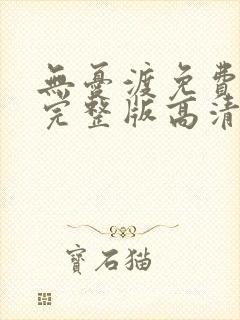 無憂渡免費
完整版高清
寶石猫